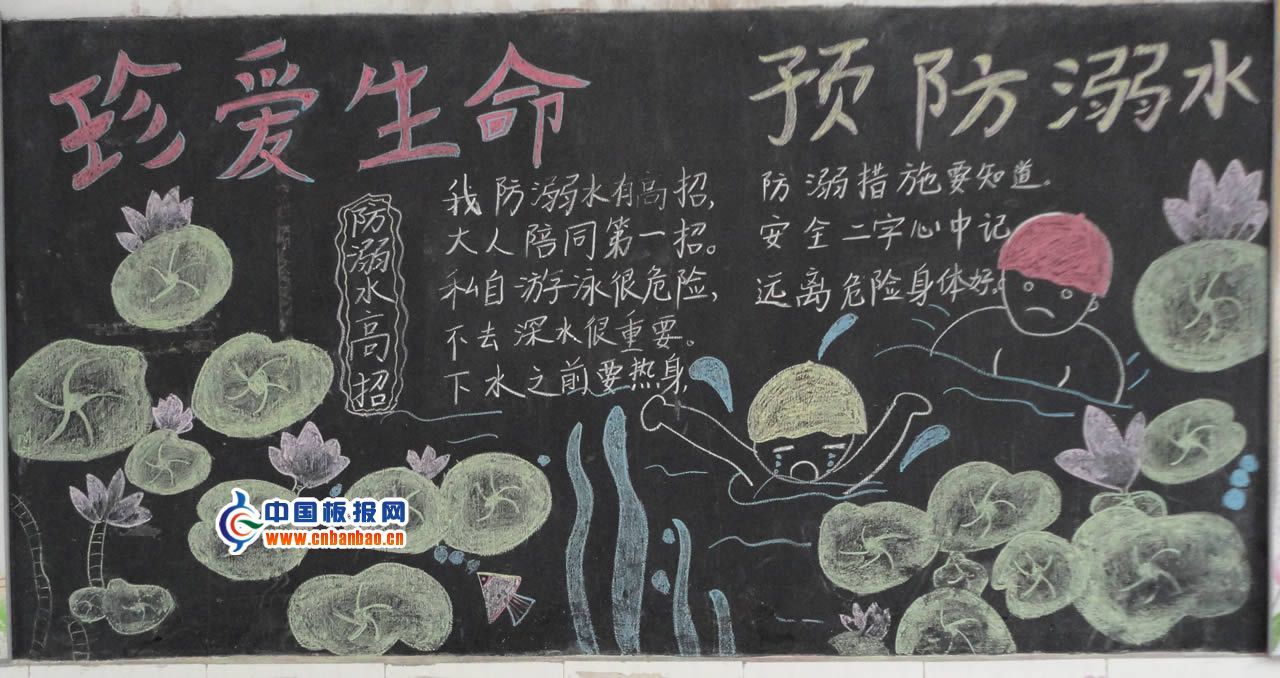 珍爱生命 预防溺水
防溺水高招
我防溺水有高招,
大人陪同第一招。
私自游泳很危险,
不去深水很重要。
下水之前要热身,
防溺措施要知道。
安全二字心中记
远离危险身体好。
中国板报网
www.cnbanbao.cn